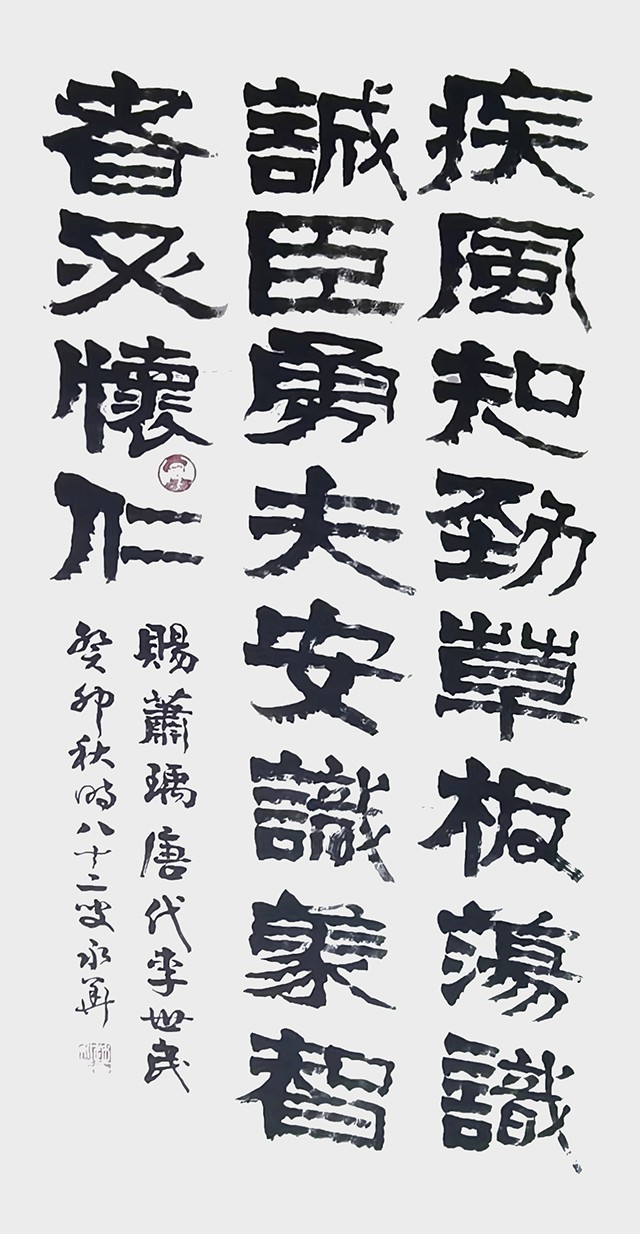 疾風知勁草板蕩識
誠臣勇夫安識義智
者必懷仁
賜蕭瑀唐代李世民
癸卯秋時八十二叟永華